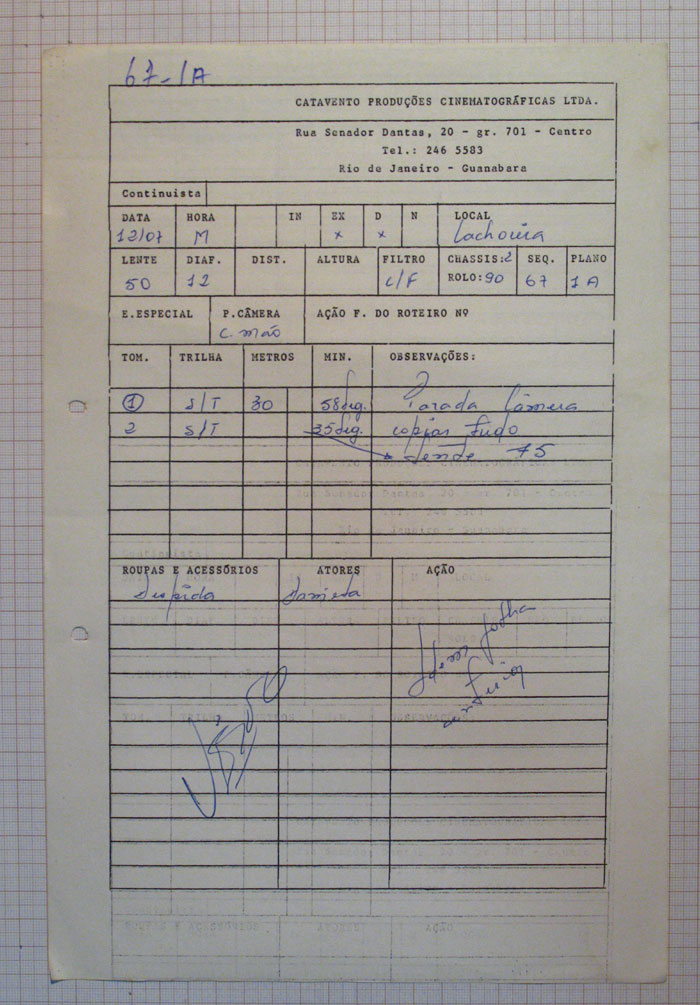 67-1A
CATAVENTO PRODUÇÕES CINEMATOGRÁFICAS LTDA.
Rua Senador Dantas, 20 - gr. 701 - Centro
Tel.: 246 5583
Rio de Janeiro - Guanabara
Continuista
DATA HORA IN EX D N LOCAL
12/07 M x x Cachoeira
LENTE DIAF. DIST. ALTURA FILTRO CHASSIS:2 SEQ. PLANO
50 12 C/F ROLO:90 67 1A
E.ESPECIAL P.CÂMERA AÇÃO F. DO ROTEIRO Nº
C. mão
TOM. TRILHA METROS MIN. OBSERVAÇÕES:
1 S/T 30 58seg. Parada Câmera
2 S/T 35seg. copiar tudo
desde 75
ROUPAS E ACESSÓRIOS ATORES AÇÃO
Despida Daniela
Idem folha
anterior